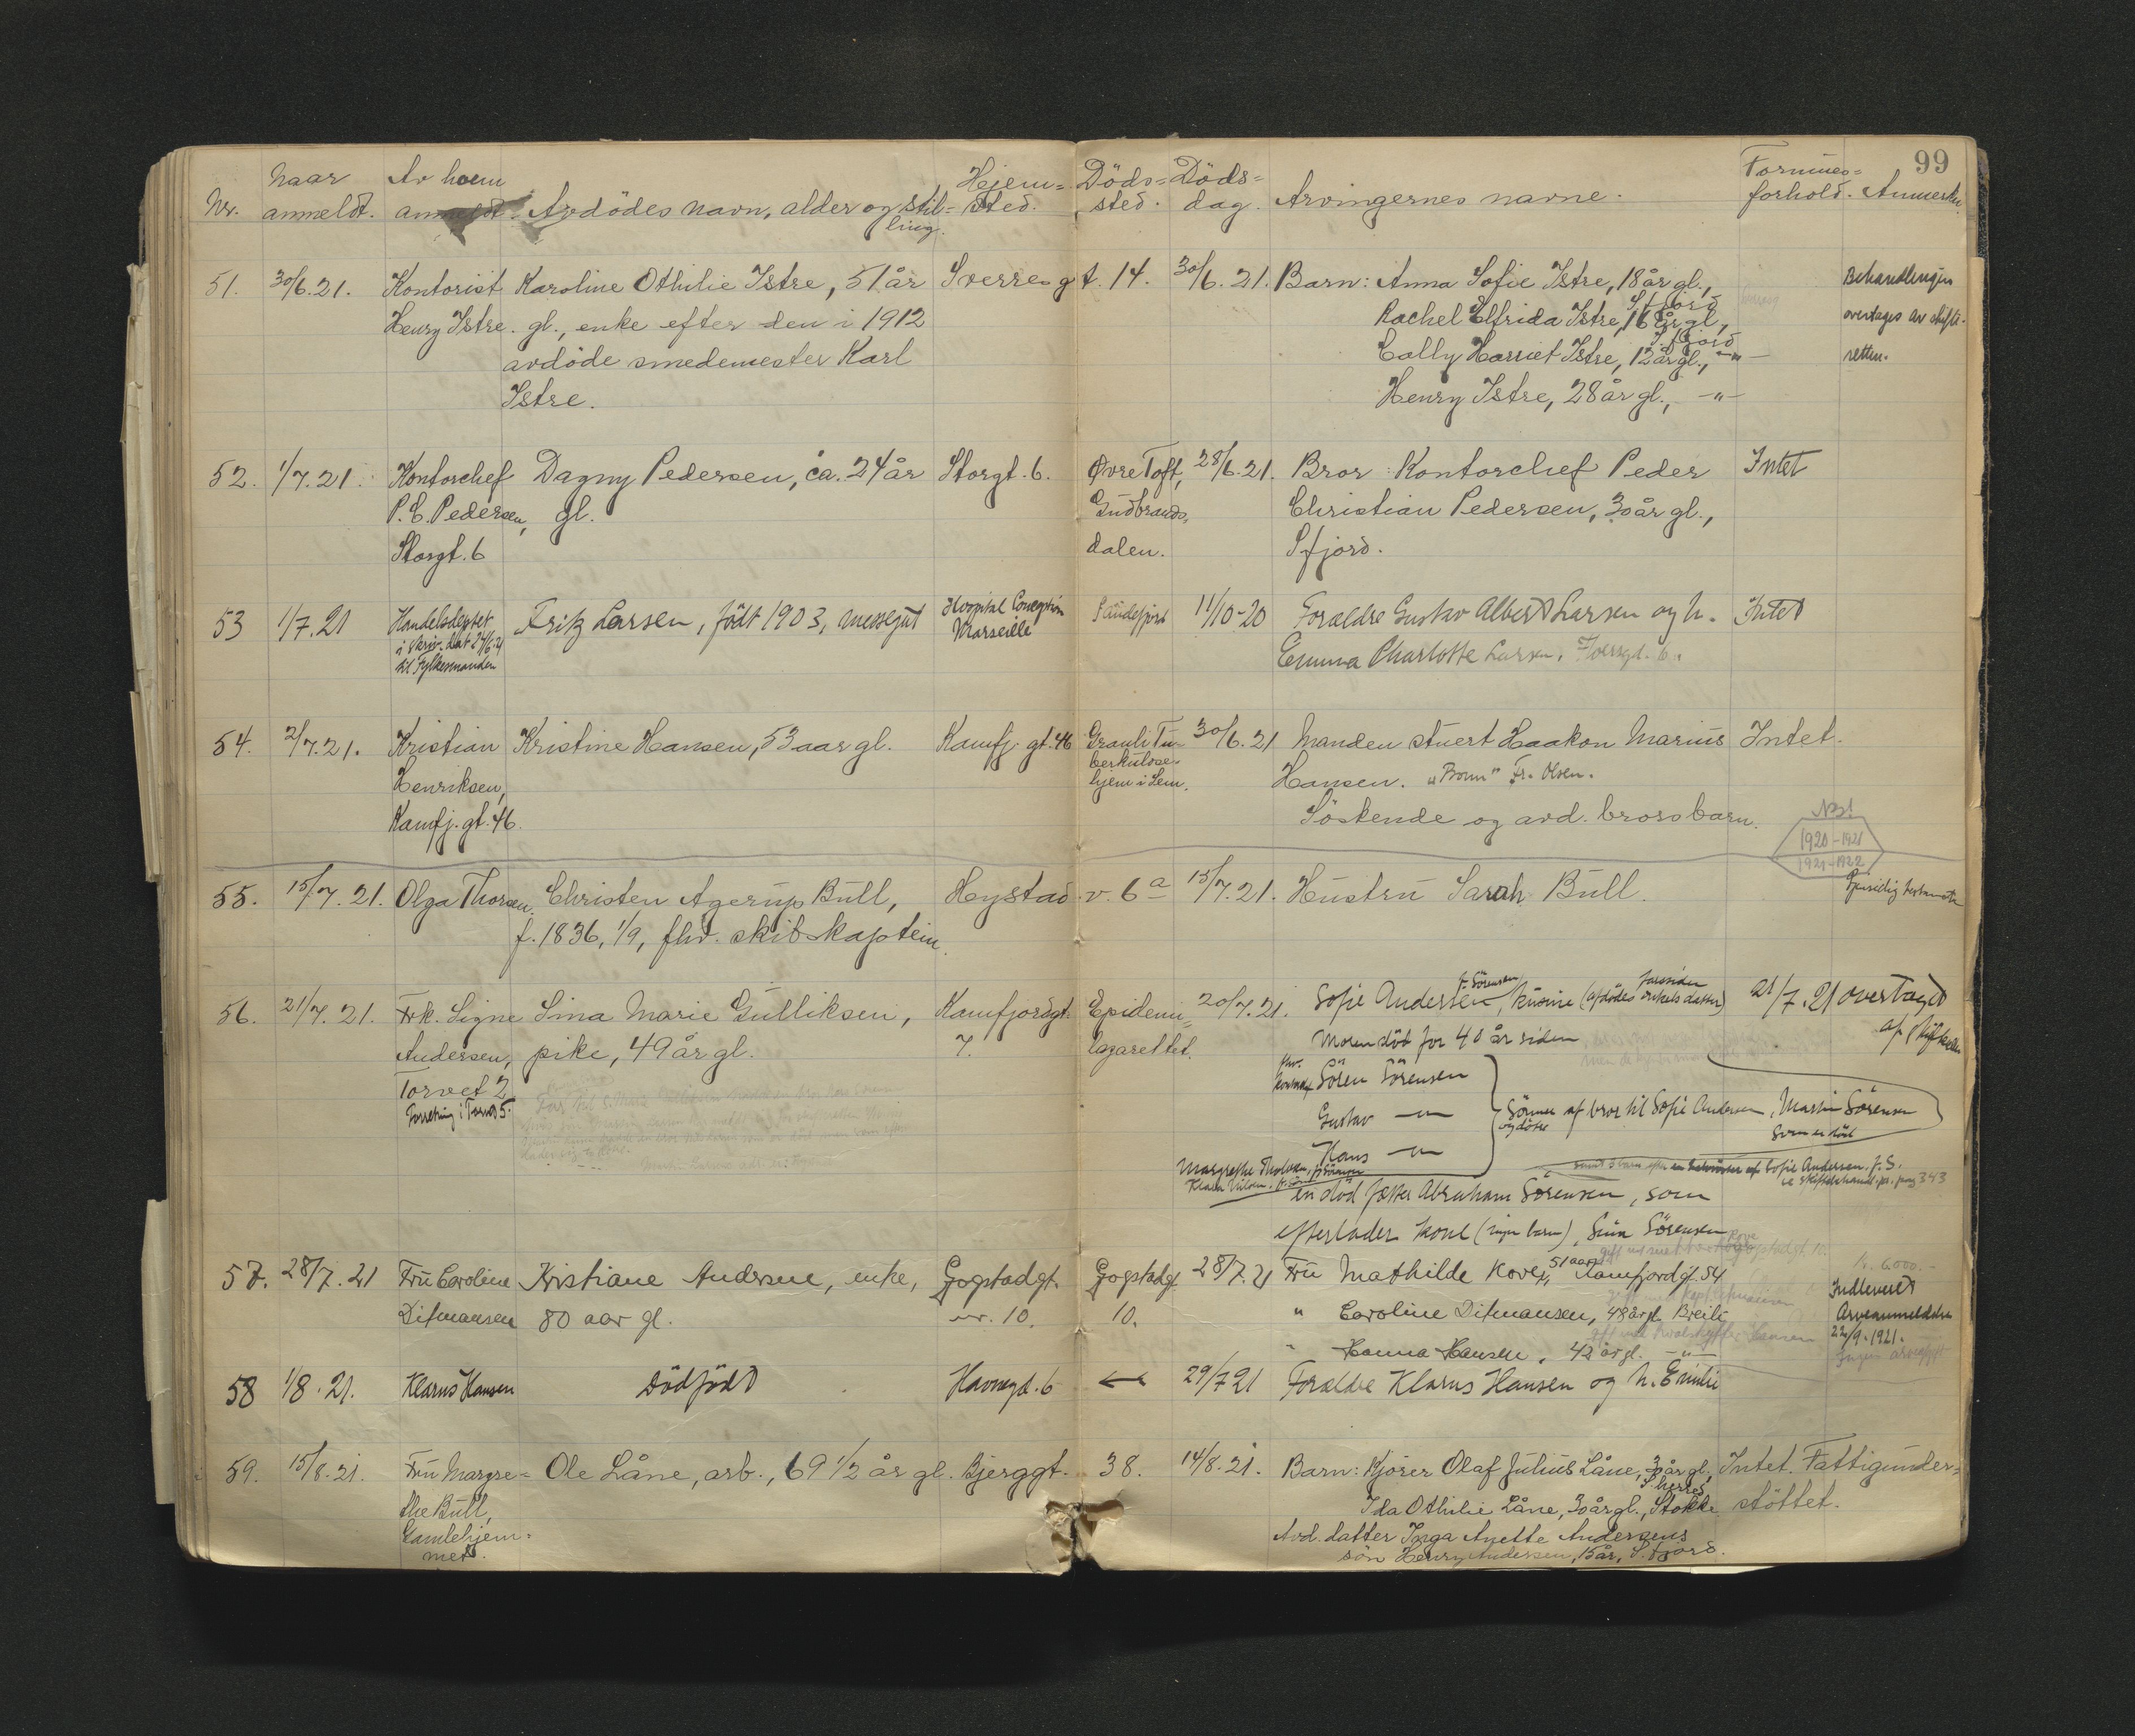 99
Nr.
Naar
anmeldt.
Av hvem
anmeldt.
Avdödes navn, alder og stil=
ling.
Hjem=
sted.
Döds=
sted.
Döds=
dag.
Arvingernes navne.
Formues=
forhold.
Anmerkn.
51. 30/6.21. Kontorist Karoline Othilie Istre, 51 år Sverres gt. 14. 30/6.21. Barn: Anna Sofie Istre, 18 år gl., Behandlingen
S.fjord
Henry Istre. gl., enke efter den i 1912 Rachel Elfrida Istre, 16 år gl., overtages av skifte-
S.fjord
avdöde smedemester Karl Cally Harriet Istre, 12 år gl., -"- retten.
Istre. Henry Istre, 28 år gl., -"-
52. 1/7.21. Kontorchef Dagny Pedersen, ca. 24 år Storgt. 6. Øvre Toft, 28/6.21. Bror: Kontorchef Peder Intet
P. C. Pedersen, gl. Gudbrands= Christian Pedersen, 30 år gl.,
Storgt. 6 dalen. S.fjord.
53 1/7.21 Handelsdeptet Fritz Larsen, födt 1903, messegut Hospital Conception Sandefjord 11/10-20 Forældre Gustav Albert Larsen og h. Intet
i skriv. dat 24/6.21 Marseille Emma Charlotte Larsen.
til Fylkesmanden
54. 2/7.21. Kristian Kristine Hansen, 53 aar gl. Kamfj. gt. 46 Grauli Tu= 30/6.21 Manden stuert Haakon Marius Intet.
Henriksen, berkulose= Hansen. Fr. Olsen.
Kamfj. gt. 46. hjem i Sem. Söskende og avd. brorsbarn.
1920-1921
1921-1922
55. 15/7.21. Olga Thorsen. Christen Agerup Bull, Hystad v. 6a 15/7.21. Hustru Sarah Bull. Gjensidig testamente
f. 1836, 1/9, fhv. skibskaptein.
56. 21/7.21. Frk. Signe Lina Marie Gulliksen, Kamfjordgt. Epidemi= 20/7.21. Sofie Andersen, f. Sörensen kusine (afdödes onkels datter) 21/7.21 overtaget
Andersen, pike, 49 år gl. 7. lazarettet. Moren död for 40 år siden af skifteretten
Torvet 2
Forretning i Torvet 5.
Sören Sörensen
Gustav -"- Sönner af bror til Sofie Andersen, Martin Sörensen
og døtre som er död
Hans -"-
Margrethe
Klara
Sofie Andersen. f. S.
343
en död fætter Abraham Sörensen, som
efterlader kone (ingen barn), Sina Sörensen
57. 28/7.21 Fru Caroline Kristiane Andersen, enke, Gogstadgt. Gogstadgt. 28/7.21 Fru Mathilde Kove, 51 aar, Kamfjordgt. 54. Kr. 6000.-
Ditmansen 80 aar gl. nr. 10. 10. " Caroline Ditmansen, 48 år gl. Breili Indleveret
Arveanmeldelse
" Hanna Hansen, 42 år gl. -"- 22/9.1921.
58 1/8.21. Klarus Hansen Dödfödt Havnegt. 6 ← 29/7 21 Forældre Klarus Hansen og h. Emilie
59. 15/8.21. Fru Margre= Ole Låne, arb., 69 1/2 år gl. Bjerggt. 38. 14/8.21. Barn: Kjörer Olaf Julius Låne, 30 år gl., Intet. Fattigunder=
S.herred
the Bull, Ida Othilie Låne, 30 år gl., Stokke stöttet.
Gamlehjem= Avd. datter Inga Anette Andersens
met. sön Henry Andersen, 15 år, S.fjord.